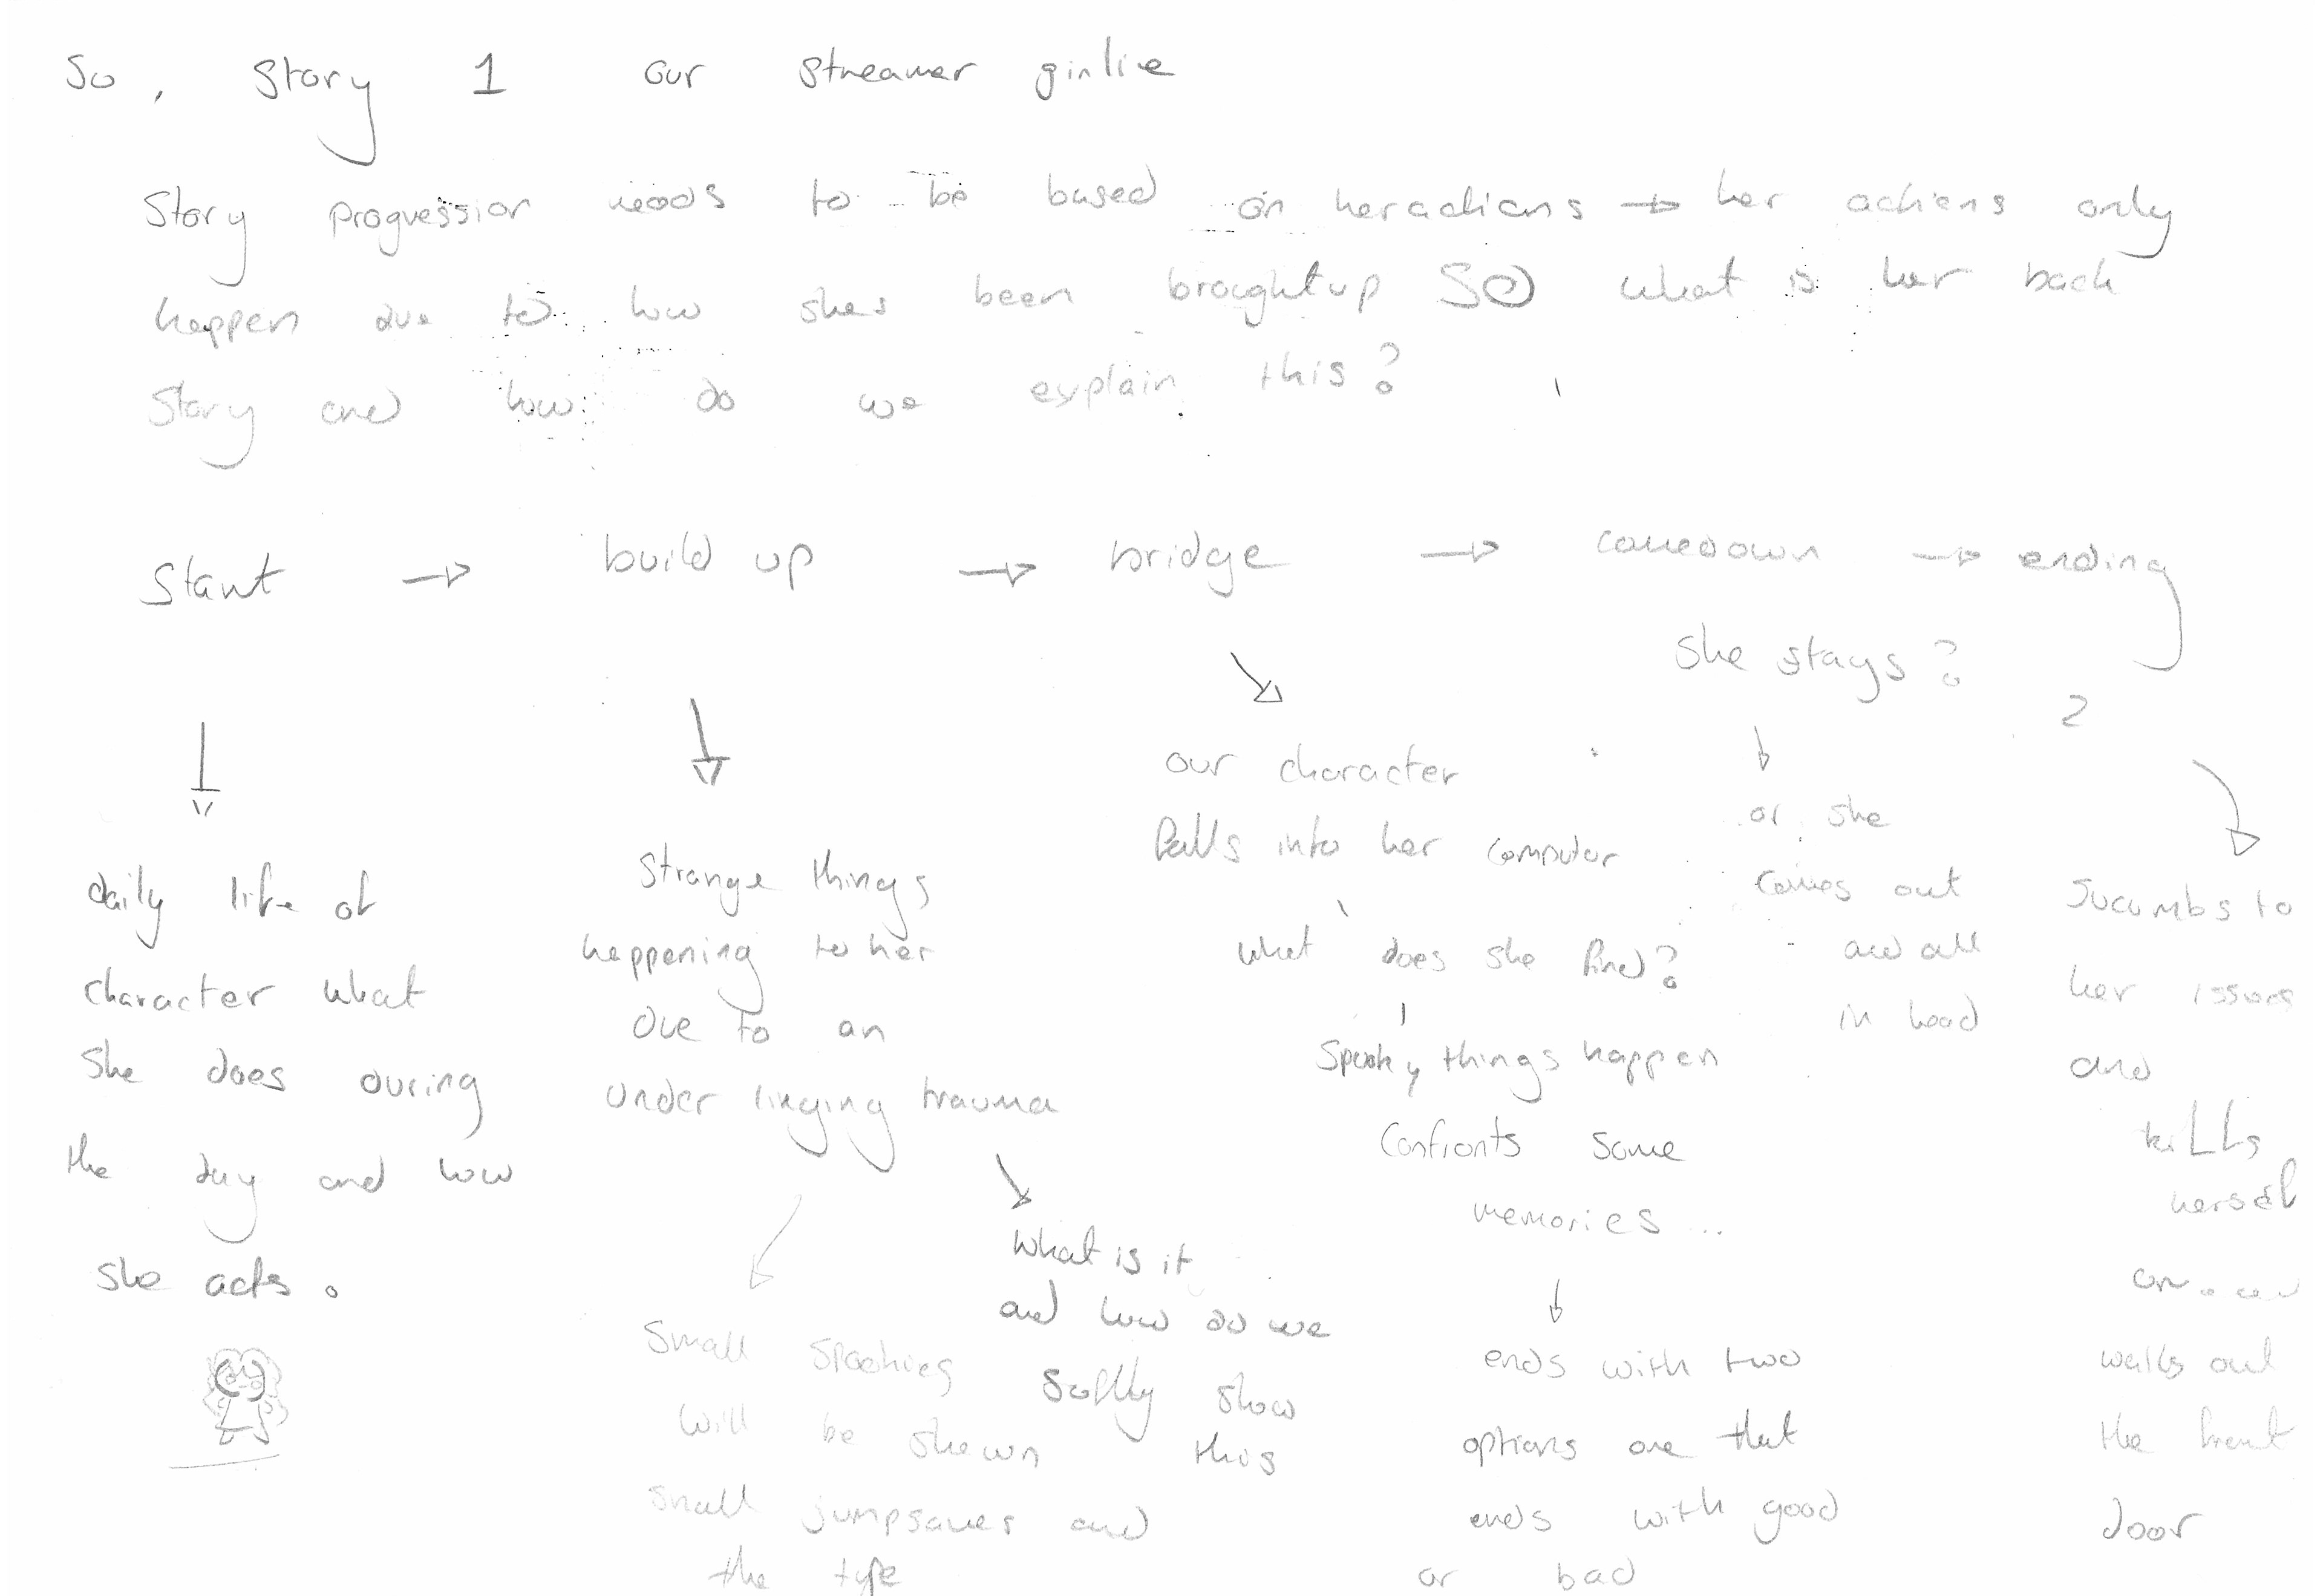 So, Story 1 our streamer girlie
Story progression needs to be based on her actions → her actions only
happen due to how shes been brought up SO what is her back
Story and how do we explain this?
Start → build up → bridge → comedown → ending
daily life of
character what
She does during
the day and how
she acts.
Strange things
happening to her
due to an
under linging trauma
Small spookies
will be shown
small jumpsaues and
the type
What is it
and how do we
softly show
this
our character
falls into her computer
what does she find?
Spooky things happen
Confronts some
memories ...
ends with two
options one that
ends with good
or bad
She stays?
or she
comes out
and all
in head
2
Sucumbs to
her issues
and
kills
herself
or
walks out
the front
door